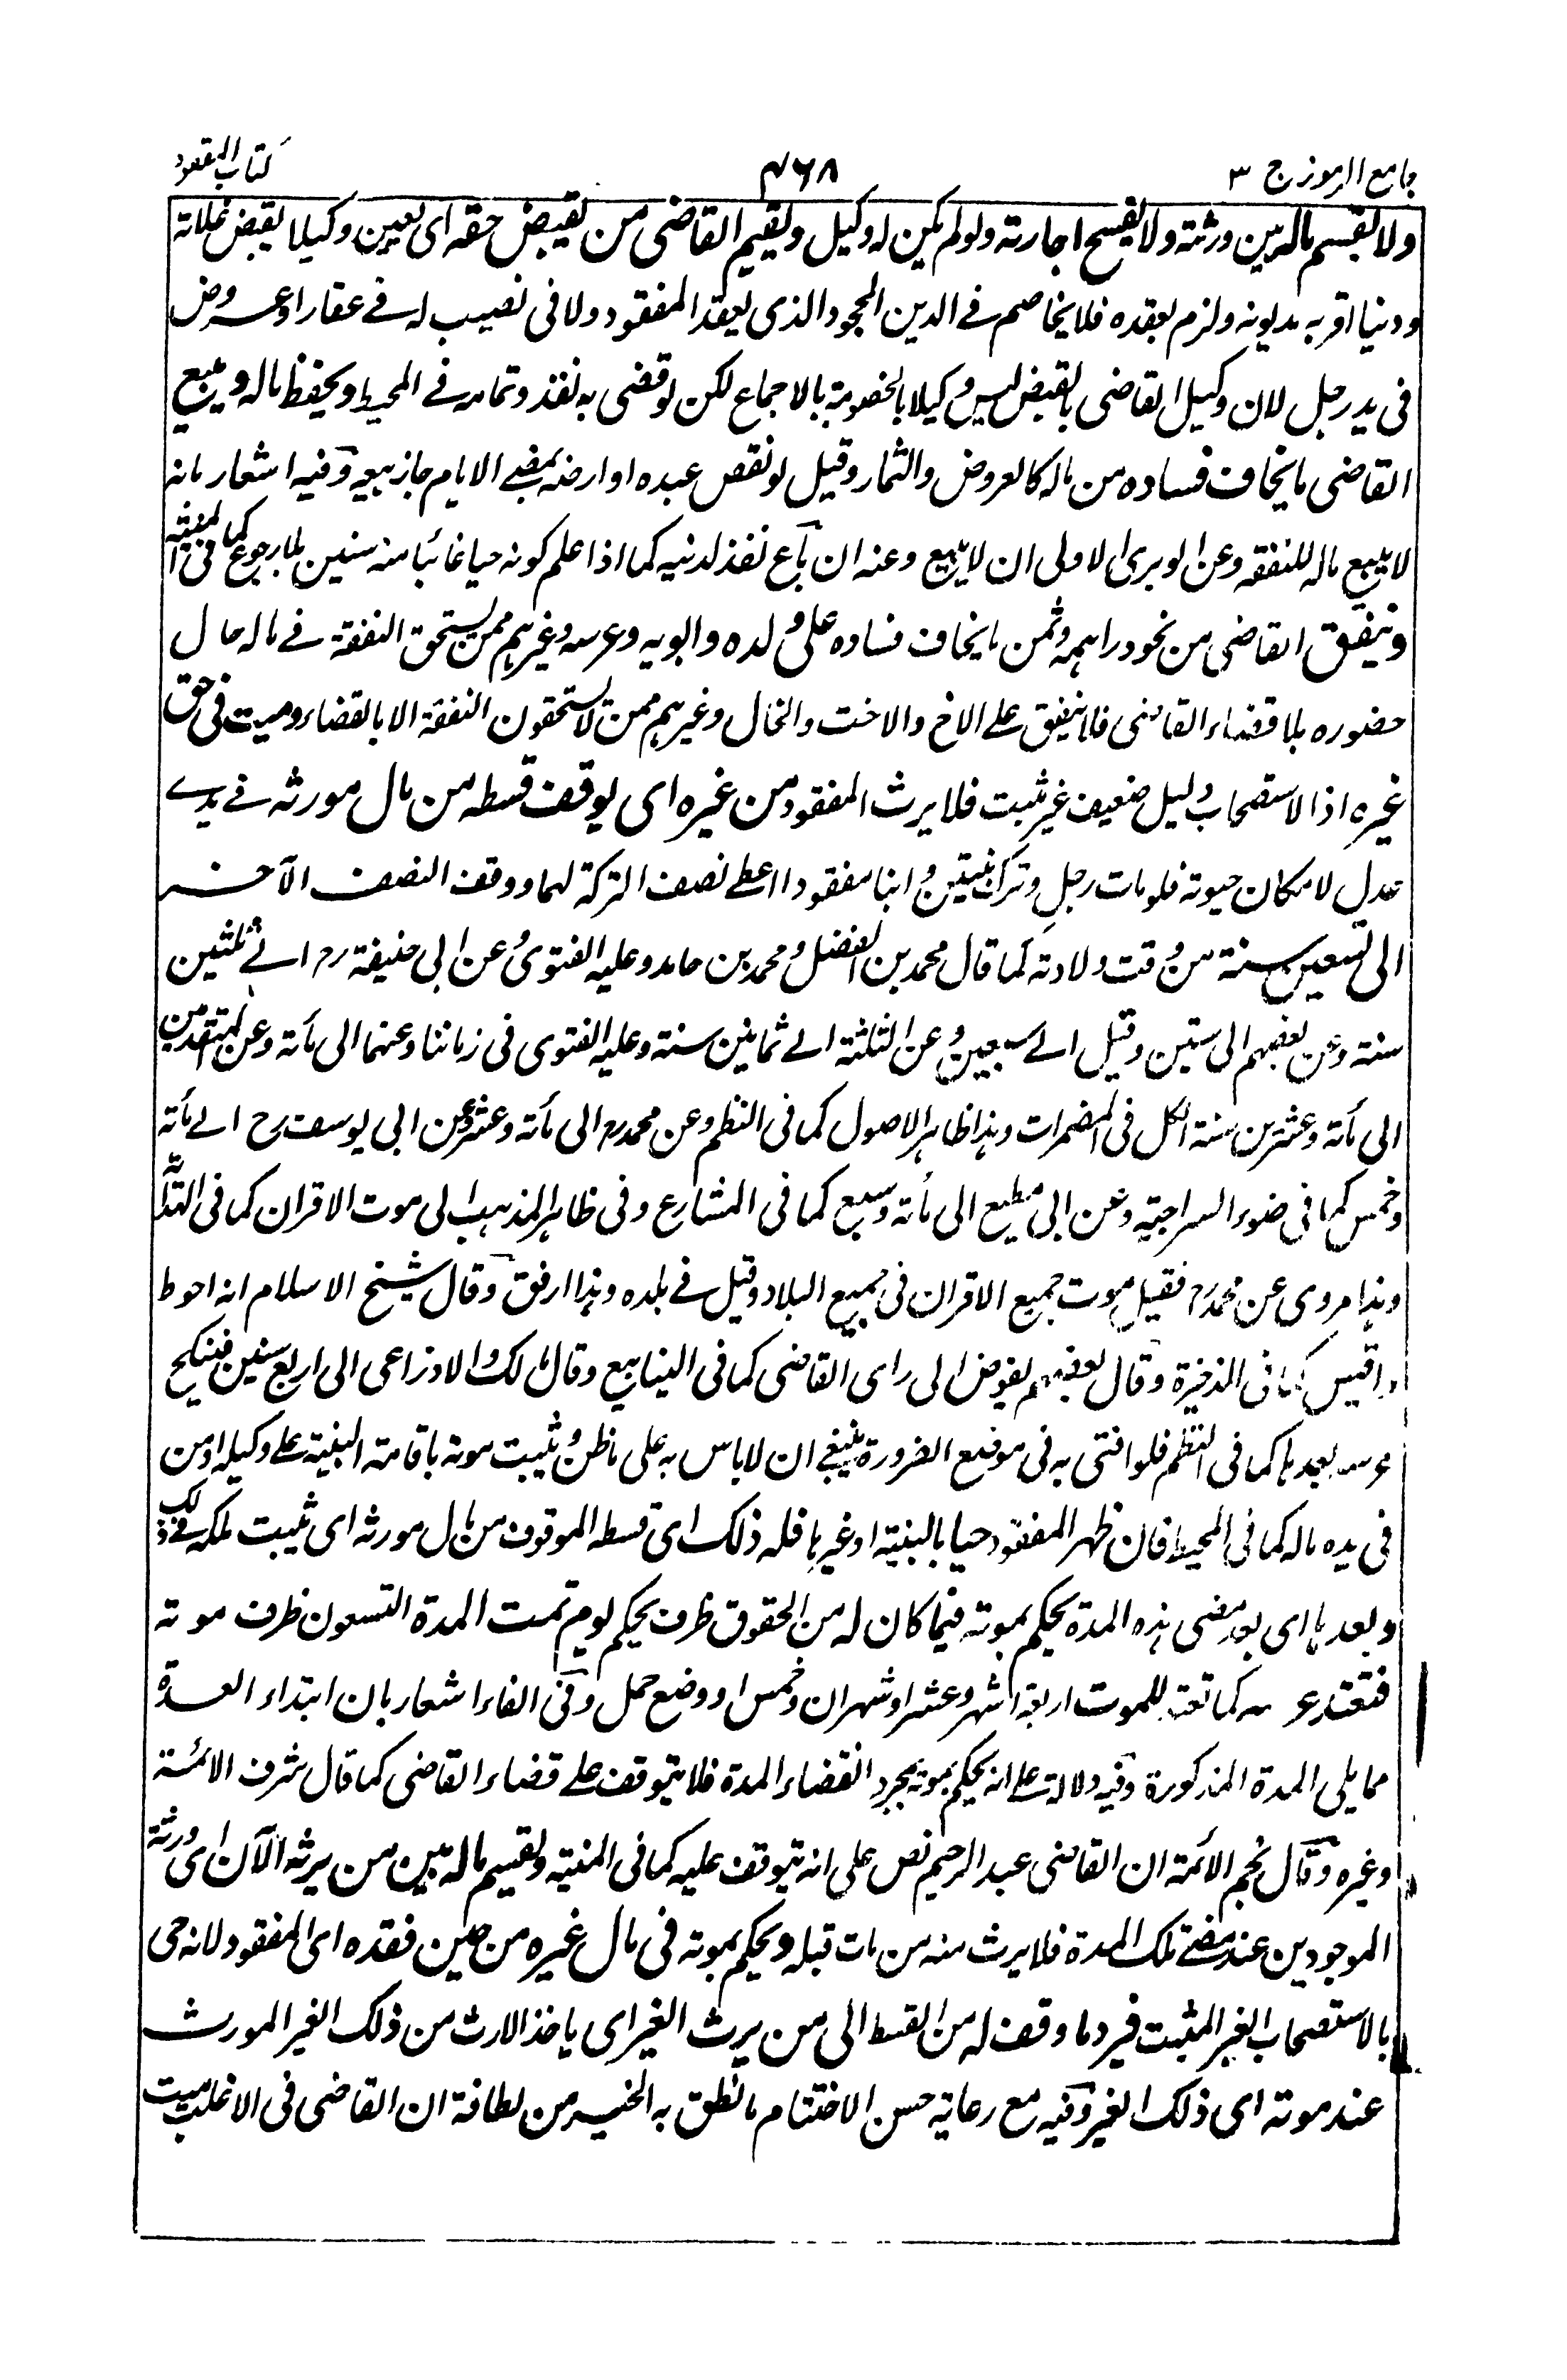 جامع الرموز ج ٣
٤٦٨
كتاب المفقود
ولا يقسم ماله بين ورثته ولا يفسخ اجارته ولو لم يكن له وكيل ويقيم القاضى من يقبض حقه اى يعين وكيلا يقبض غلاته
ودينا اقر به مديونه ولزم بعقده فلا يخاصم فى الدين المجحود الذى يعقد المفقود ولا فى نصيب له فى عقار او عروض
فى يد رجل لان وكيل القاضى بالقبض ليس وكيلا بالخصومة بالاجماع لكن لو قضى به نفذ وتمامه فى المحيط ويحفظ ماله ويبيع
القاضى ما يخاف فساده من ماله كالعروض والثمار وقيل لو نقص عبده او ارضه بمضى الايام جاز بيعه وفيه اشعار بانه
لا يبيع ماله للنفقة وعن الوبرى الاولى ان لا يبيع وعنه ان باع نفذ لدينه كما اذا علم كونه حيا غائبا منه سنين بلا رجوع كما فى المنية
وينفق القاضى من نحو دراهمه وثمن ما يخاف فساده على ولده وابويه وعرسه وغيرهم ممن يستحق النفقة فى ماله حال
حضوره بلا قضاء القاضى فلا ينفق على الاخ والاخت والخال وغيرهم ممن لا يستحقون النفقة الا بالقضاء وميت فى حق
غيره اذا الاستصحاب دليل ضعيف غير مثبت فلا يرث المفقود من غيره اى يوقف قسطه من مال مورثه فى يدى
عدل لامكان حيوته فلو مات رجل وترك بنتين وابنا مفقودا اعطى نصف التركة لهما ووقف النصف الآخر
الى تسعين سنة من وقت ولادته كما قال محمد بن الفضل ومحمد بن حامد وعليه الفتوى وعن ابى حنيفة رح الى ثلثين
سنة وعن بعضهم الى ستين وقيل الى سبعين وعن الثلثة الى ثمانين سنة وعليه الفتوى فى زماننا وعنهما الى مأته وعن المتقدمين
الى مأته وعشرين سنة الكل فى المضمرات وهذا ظاهر الاصول كما فى النظم وعن محمد رح الى مأته وعشر وعن ابى يوسف رح الى مأته
وخمس كما فى ضوء السراجية وعن ابى مطيع الى مأته وسبع كما فى المشارع وفى ظاهر المذهب الى موت الاقران كما فى الهداية
وهذا مروى عن محمد رح فقيل موت جميع الاقران فى جميع البلاد وقيل فى بلده وهذا ارفق وقال شيخ الاسلام انه احوط
واقيس كما فى الذخيرة وقال بعضهم يفوض الى راى القاضى كما فى الينابيع وقال مالك والاوزاعى الى اربع سنين فينكح
عرسه بعدها كما فى النظم فلو افتى به فى موضع الضرورة ينبغى ان لا باس به على ما ظن ويثبت موته باقامة البينة على وكيله او من
فى يده ماله كما فى المحيط فان ظهر المفقود حيا بالبينة او غيرها فله ذلك اى قسطه الموقوف من مال مورثه اى يثبت ملكه فى ذلك
وبعدها اى بعد مضى هذه المدة يحكم بموته فيما كان له من الحقوق ظرف يحكم يوم تمت المدة التسعون ظرف موته
فتعتد عرسه كما تعتد للموت اربعة اشهر وعشرا وشهران وخمس او وضع حمل وفى الفاء اشعار بان ابتداء العدة
مما يلى المدة المذكورة وفيه دلالة على انه يحكم بموته بمجرد انقضاء المدة فلا يتوقف على قضاء القاضى كما قال شرف الائمة
وغيره وقال نجم الائمة ان القاضى عبد الرحيم نص على انه يتوقف عليه كما فى المنية ويقسم ماله بين من يرثه الآن اى ورثته
الموجودين عند مضى تلك المدة فلا يرث منه من مات قبله ويحكم بموته فى مال غيره من حين فقده اى المفقود لانه حى
بالاستصحاب الغير المثبت فيرد ما وقف له من القسط الى من يرث الغير اى ياخذ الارث من ذلك الغير المورث
عند موته اى ذلك الغير وفيه مع رعاية حسن الاختتام ما نطق به الخبر من لطافة ان القاضى فى الاغلب ميت